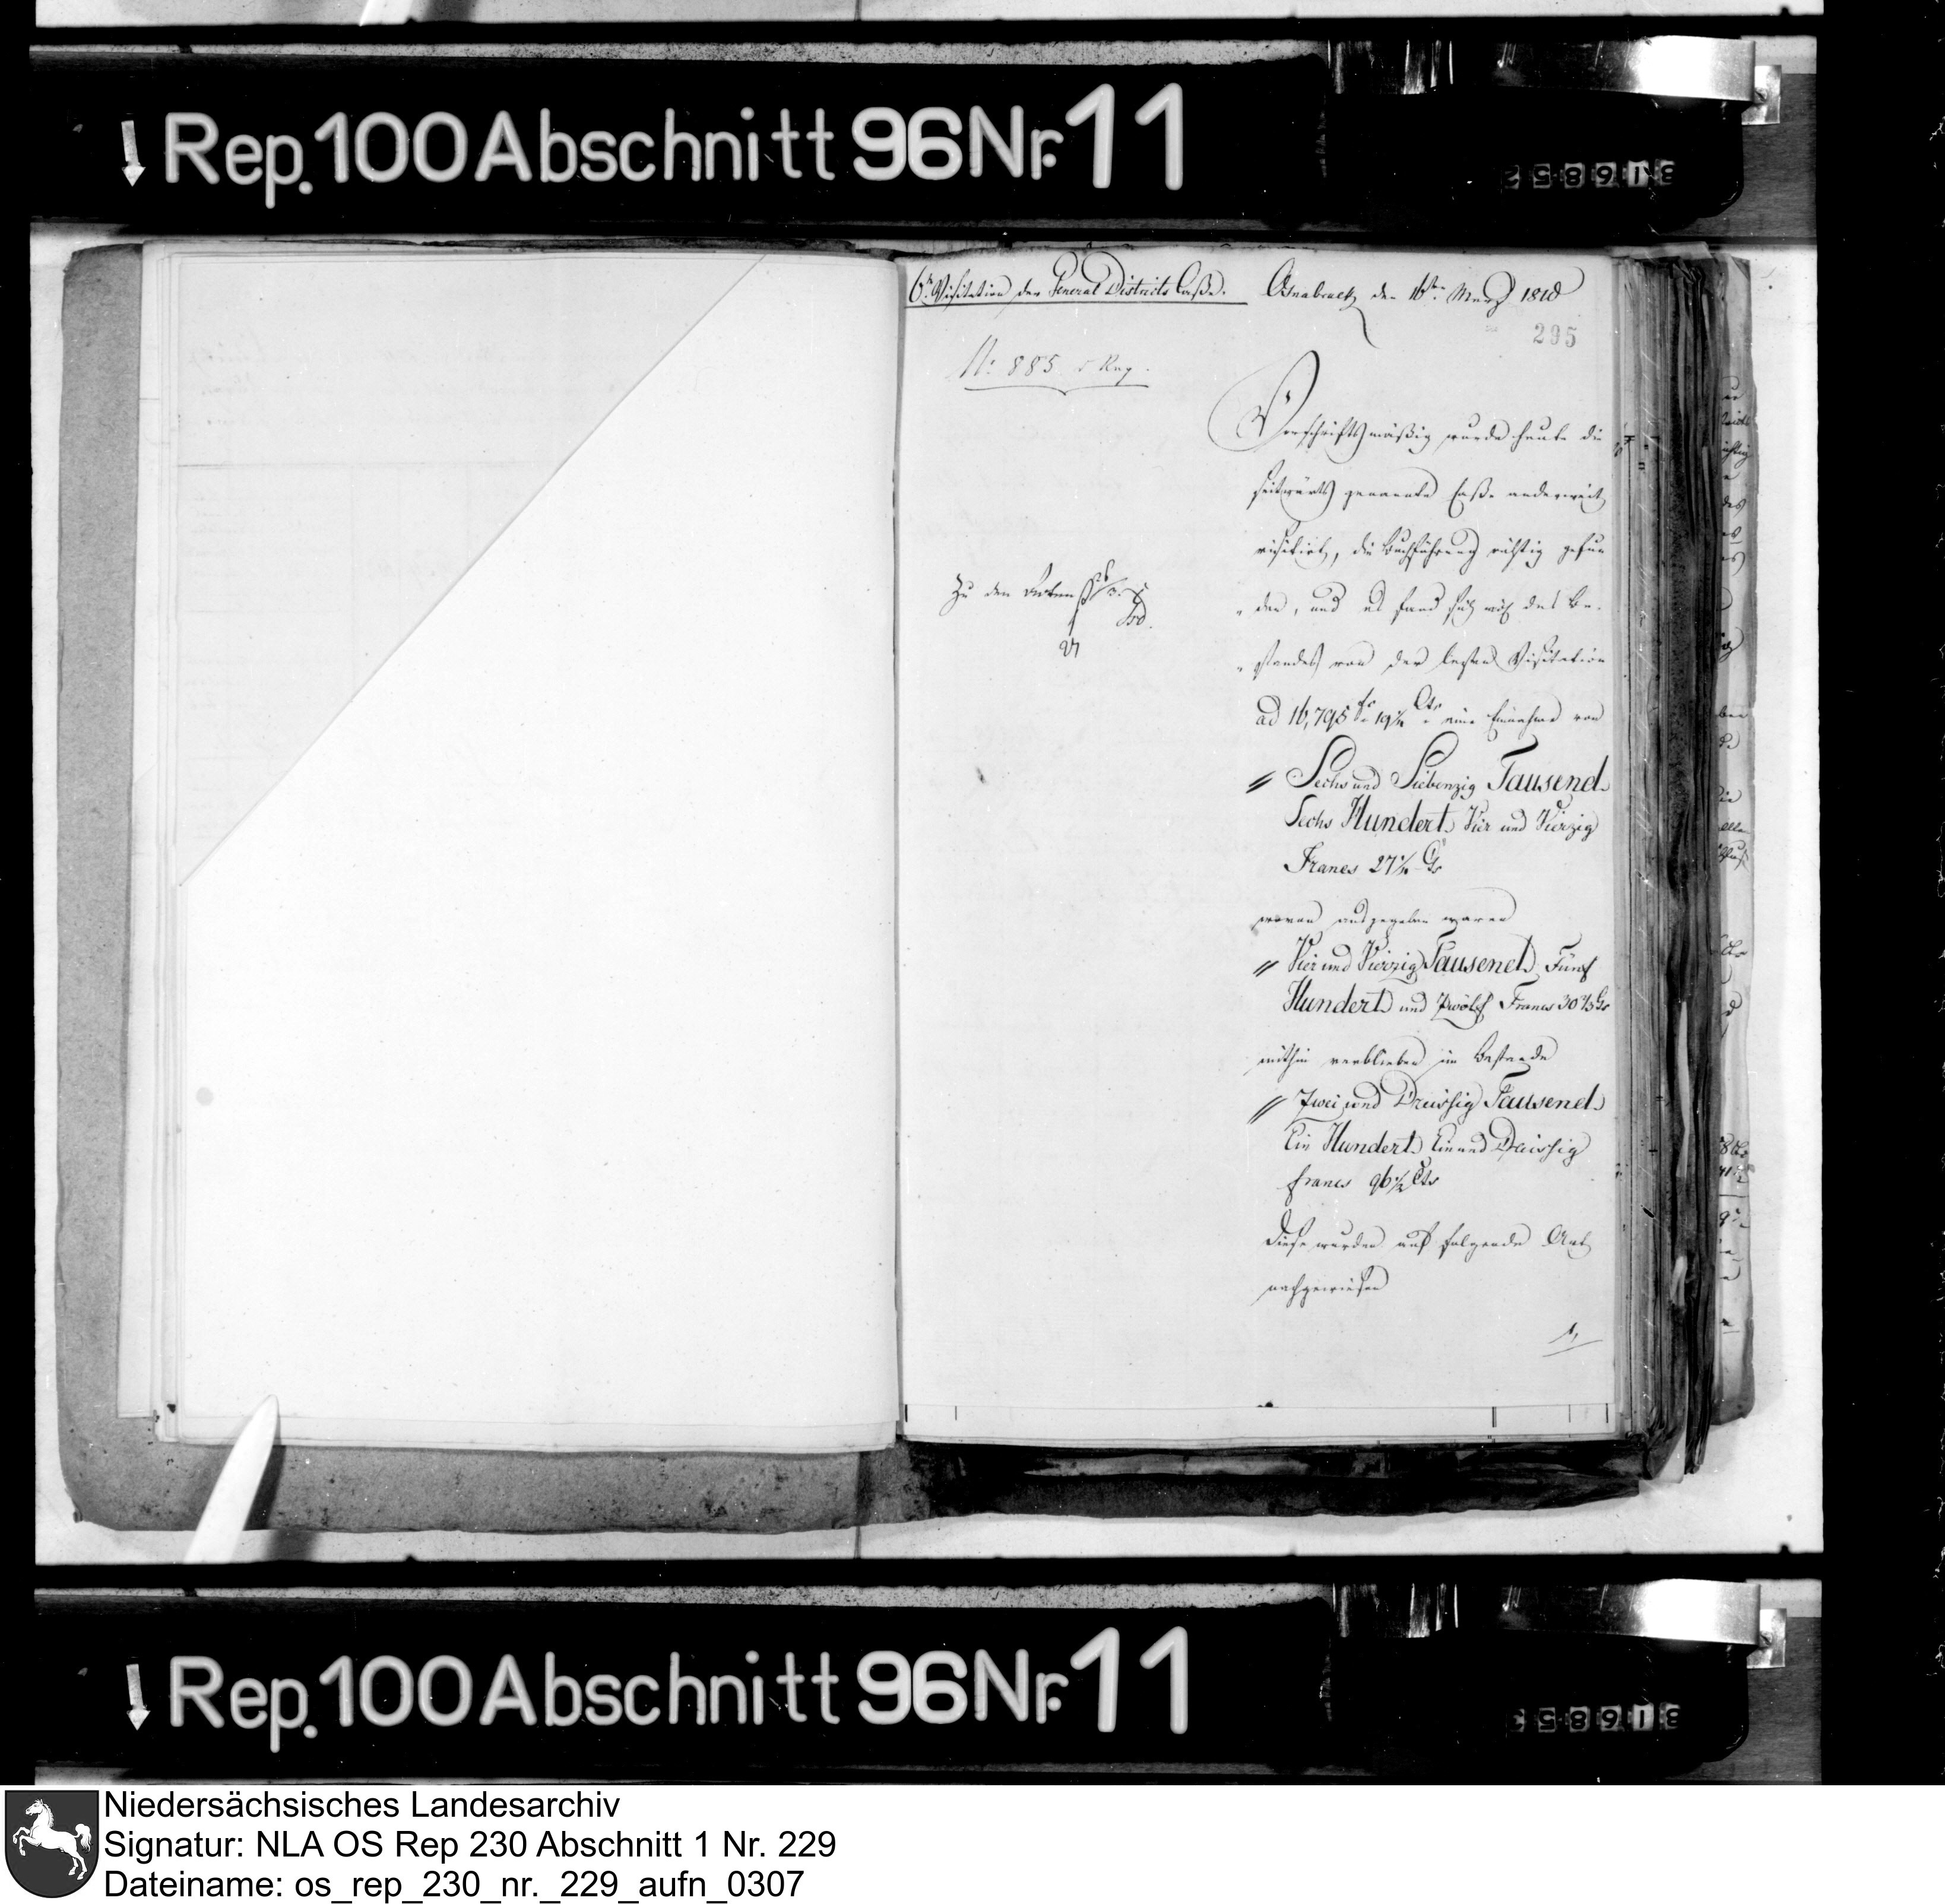 Rep. 100 Abschnitt 96 Nr. 11
6te Visitation der General Districts Casse.
Osnabrück den 16ten März 1810
295
No 885
Vorschriftsmäßig wurde heute die
seitwärts genannte Casse anderweit
visitirt, die Buchführung richtig gefun
den, und es fand sich excl. des Be-
standes von der letzten Visitation
ad 16,795 fr 19 Cts eine Einnahme von
Sechs und Siebenzig Tausend
Sechs Hundert Vier und Vierzig
Francs 27 Cts
wovon ausgegeben waren
Vier und Vierzig Tausend Fünf
Hundert und Zwölf Francs 30 Cts
mithin verblieben im Bestande
Zwei und Dreissig Tausend
Ein Hundert Ein und Dreissig
francs 96 Cts
Diese wurden auf folgende Art
nachgewiesen
Zu den Acten
Rep. 100 Abschnitt 96 Nr. 11
Niedersächsisches Landesarchiv
Signatur: NLA OS Rep 230 Abschnitt 1 Nr. 229
Dateiname: os_rep_230_nr._229_aufn_0307